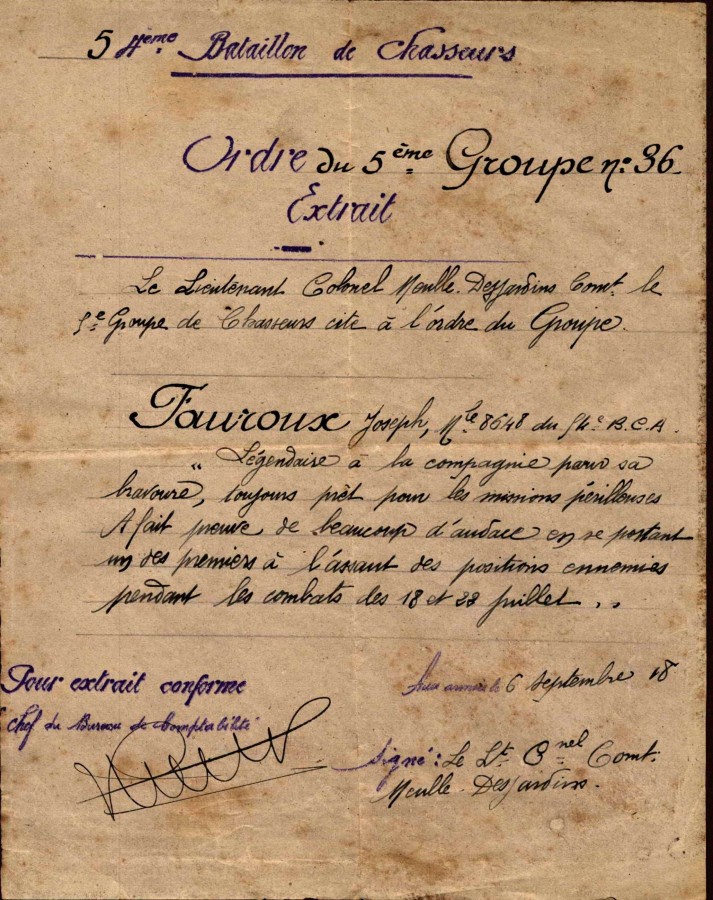 54ème Bataillon de Chasseurs
Ordre du 5ème Groupe n° 36.
Extrait
Le Lieutenant Colonel Meulle-Desjardins Comt. le
5e Groupe de Chasseurs cite à l'ordre du Groupe.
Fauroux Joseph, Mle 8648 du 54e B.C.A.
"Légendaire à la compagnie par sa
bravoure, toujours prêt pour les missions périlleuses
A fait preuve de beaucoup d'audace en se portant
un des premiers à l'assaut des positions ennemies
pendant les combats des 18 et 23 juillet..
Pour extrait conforme
Chef du Bureau de Comptabilité
Aux armées le 6 septembre 18
Signé: Le Lt. Cnel Comt.
Meulle-Desjardins.